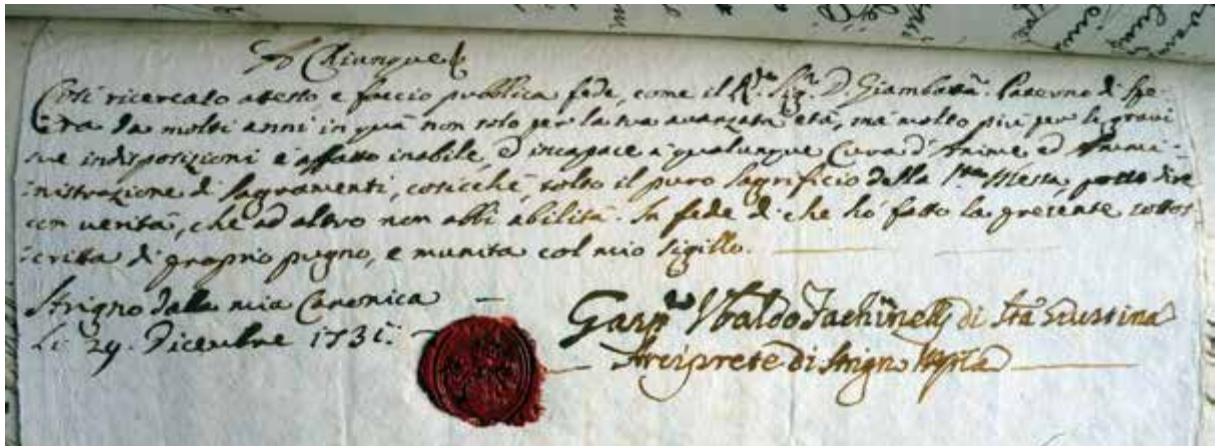 A Chiunque
Così ricercato attesto e faccio pubblica fede, come il R.do Sig.r D. Giambatta. Paterno di Spe-
ra da molti anni in quà non solo per la sua avanzata età, mà molto più per le gravi
sue indisposizioni è affatto inabile, ed incapace à qualunque Cura d'Anime ed Ammi-
nistrazione di Sagramenti, cosicché, tolto il puro Sagrificio della S.ta Messa, posso dire
con verità, che ad altro non abbi abilità. In fede di che hò fatto la presente sottos-
critta di proprio pugno, e munita col mio Sigillo.
Strigno dalla mia Canonica
Li 29. Dicembre 1731.
Ubaldo Fachinelli di Sta Giustina
Arciprete di Strigno